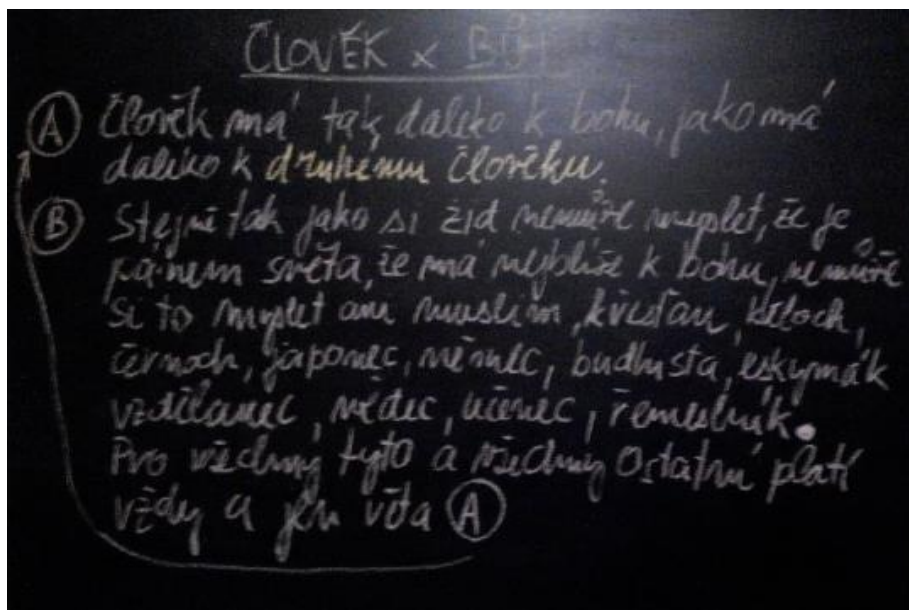 ČLOVĚK x BŮH
A Člověk má tak daleko k bohu, jako má
daleko k druhému člověku.
B Stejně tak jako si žid nemůže myslet, že je
pánem světa, že má nejblíže k bohu, nemůže
si to myslet ani muslim, křesťan, běloch,
černoch, japonec, němec, budhista, eskymák
vzdělanec, vědec, učenec, řemeslník.
Pro všechny tyto a všechny ostatní platí
vždy a jen věta A